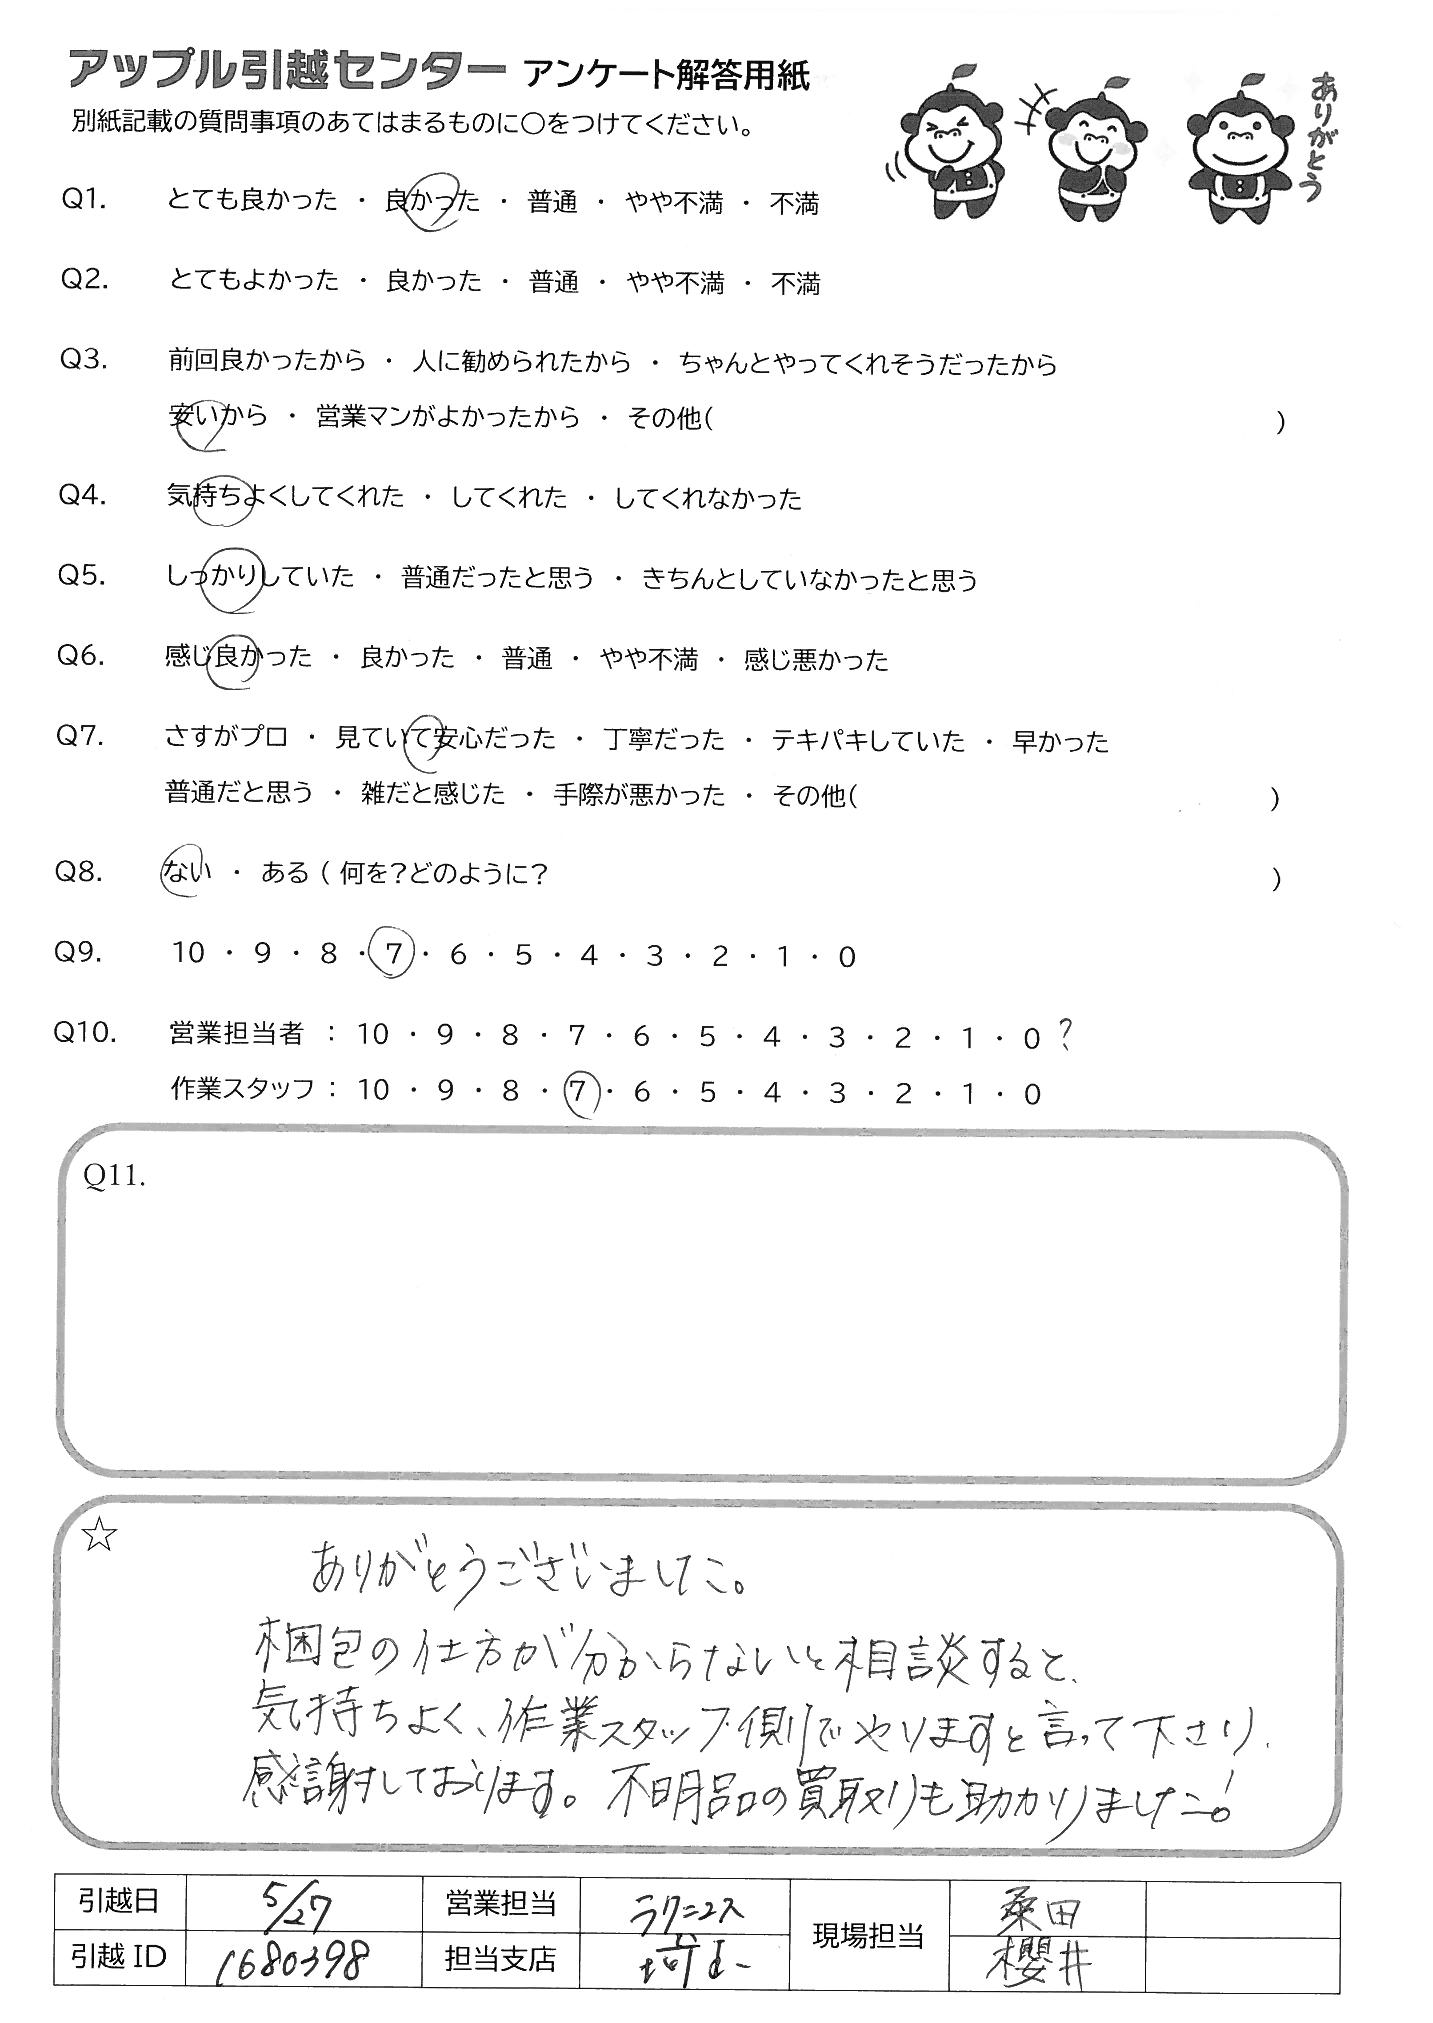 アップル引越センター アンケート解答用紙
別紙記載の質問事項のあてはまるものに〇をつけてください。
ありがとう
Q1. とても良かった ・ 良かった ・ 普通 ・ やや不満 ・ 不満
Q2. とてもよかった ・ 良かった ・ 普通 ・ やや不満 ・ 不満
Q3. 前回良かったから ・ 人に勧められたから ・ ちゃんとやってくれそうだったから
安いから ・ 営業マンがよかったから ・ その他( )
Q4. 気持ちよくしてくれた ・ してくれた ・ してくれなかった
Q5. しっかりしていた ・ 普通だったと思う ・ きちんとしていなかったと思う
Q6. 感じ良かった ・ 良かった ・ 普通 ・ やや不満 ・ 感じ悪かった
Q7. さすがプロ ・ 見ていて安心だった ・ 丁寧だった ・ テキパキしていた ・ 早かった
普通だと思う ・ 雑だと感じた ・ 手際が悪かった ・ その他( )
Q8. ない ・ ある ( 何を?どのように? )
Q9. 10 ・ 9 ・ 8 ・ 7 ・ 6 ・ 5 ・ 4 ・ 3 ・ 2 ・ 1 ・ 0
Q10. 営業担当者 : 10 ・ 9 ・ 8 ・ 7 ・ 6 ・ 5 ・ 4 ・ 3 ・ 2 ・ 1 ・ 0 ?
作業スタッフ : 10 ・ 9 ・ 8 ・ 7 ・ 6 ・ 5 ・ 4 ・ 3 ・ 2 ・ 1 ・ 0
Q11.
☆
ありがとうございました。
梱包の仕方が分からないと相談すると、
気持ちよく、作業スタッフ側でやりますと言って下さり、
感謝しております。不明品の買取りも助かりました!。
引越日 5/27 営業担当 ラクニコス 現場担当 桑田
引越ID 1680398 担当支店 埼玉 櫻井